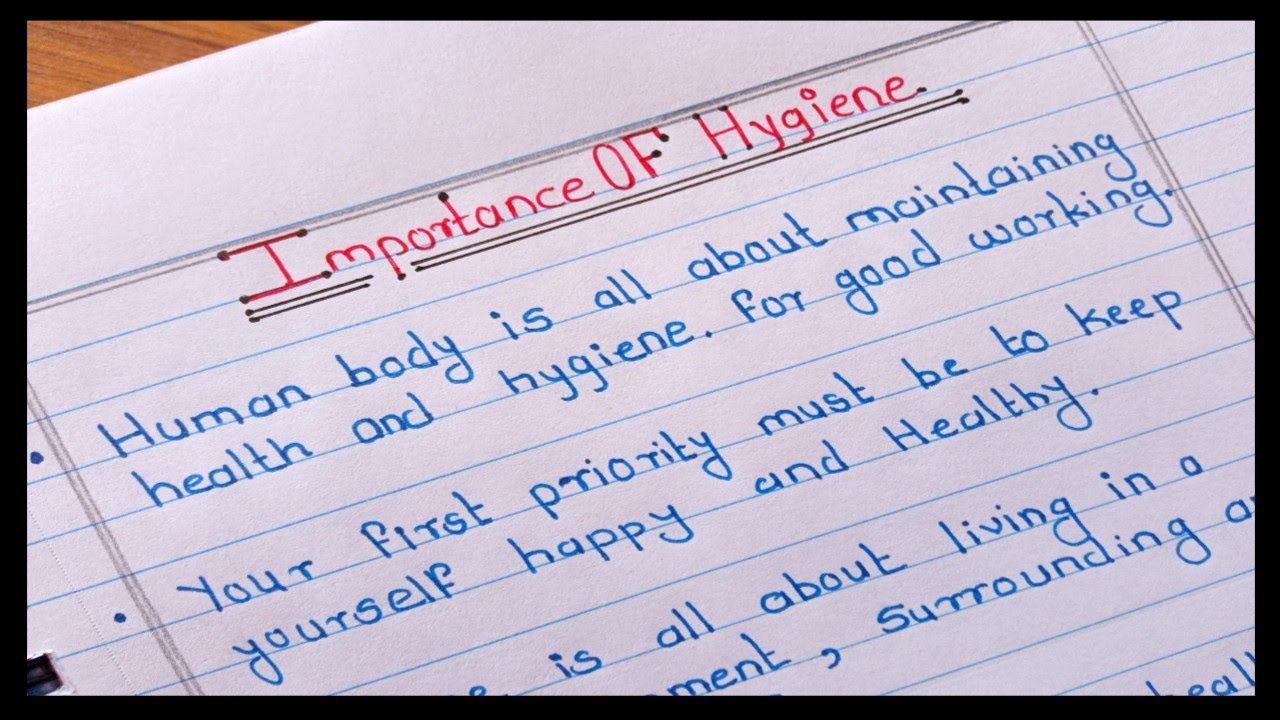 Importance OF Hygiene
Human body is all about maintaining
health and hygiene. For good working.
Your first priority must be to keep
yourself happy and Healthy.
is all about living in a
, surrounding